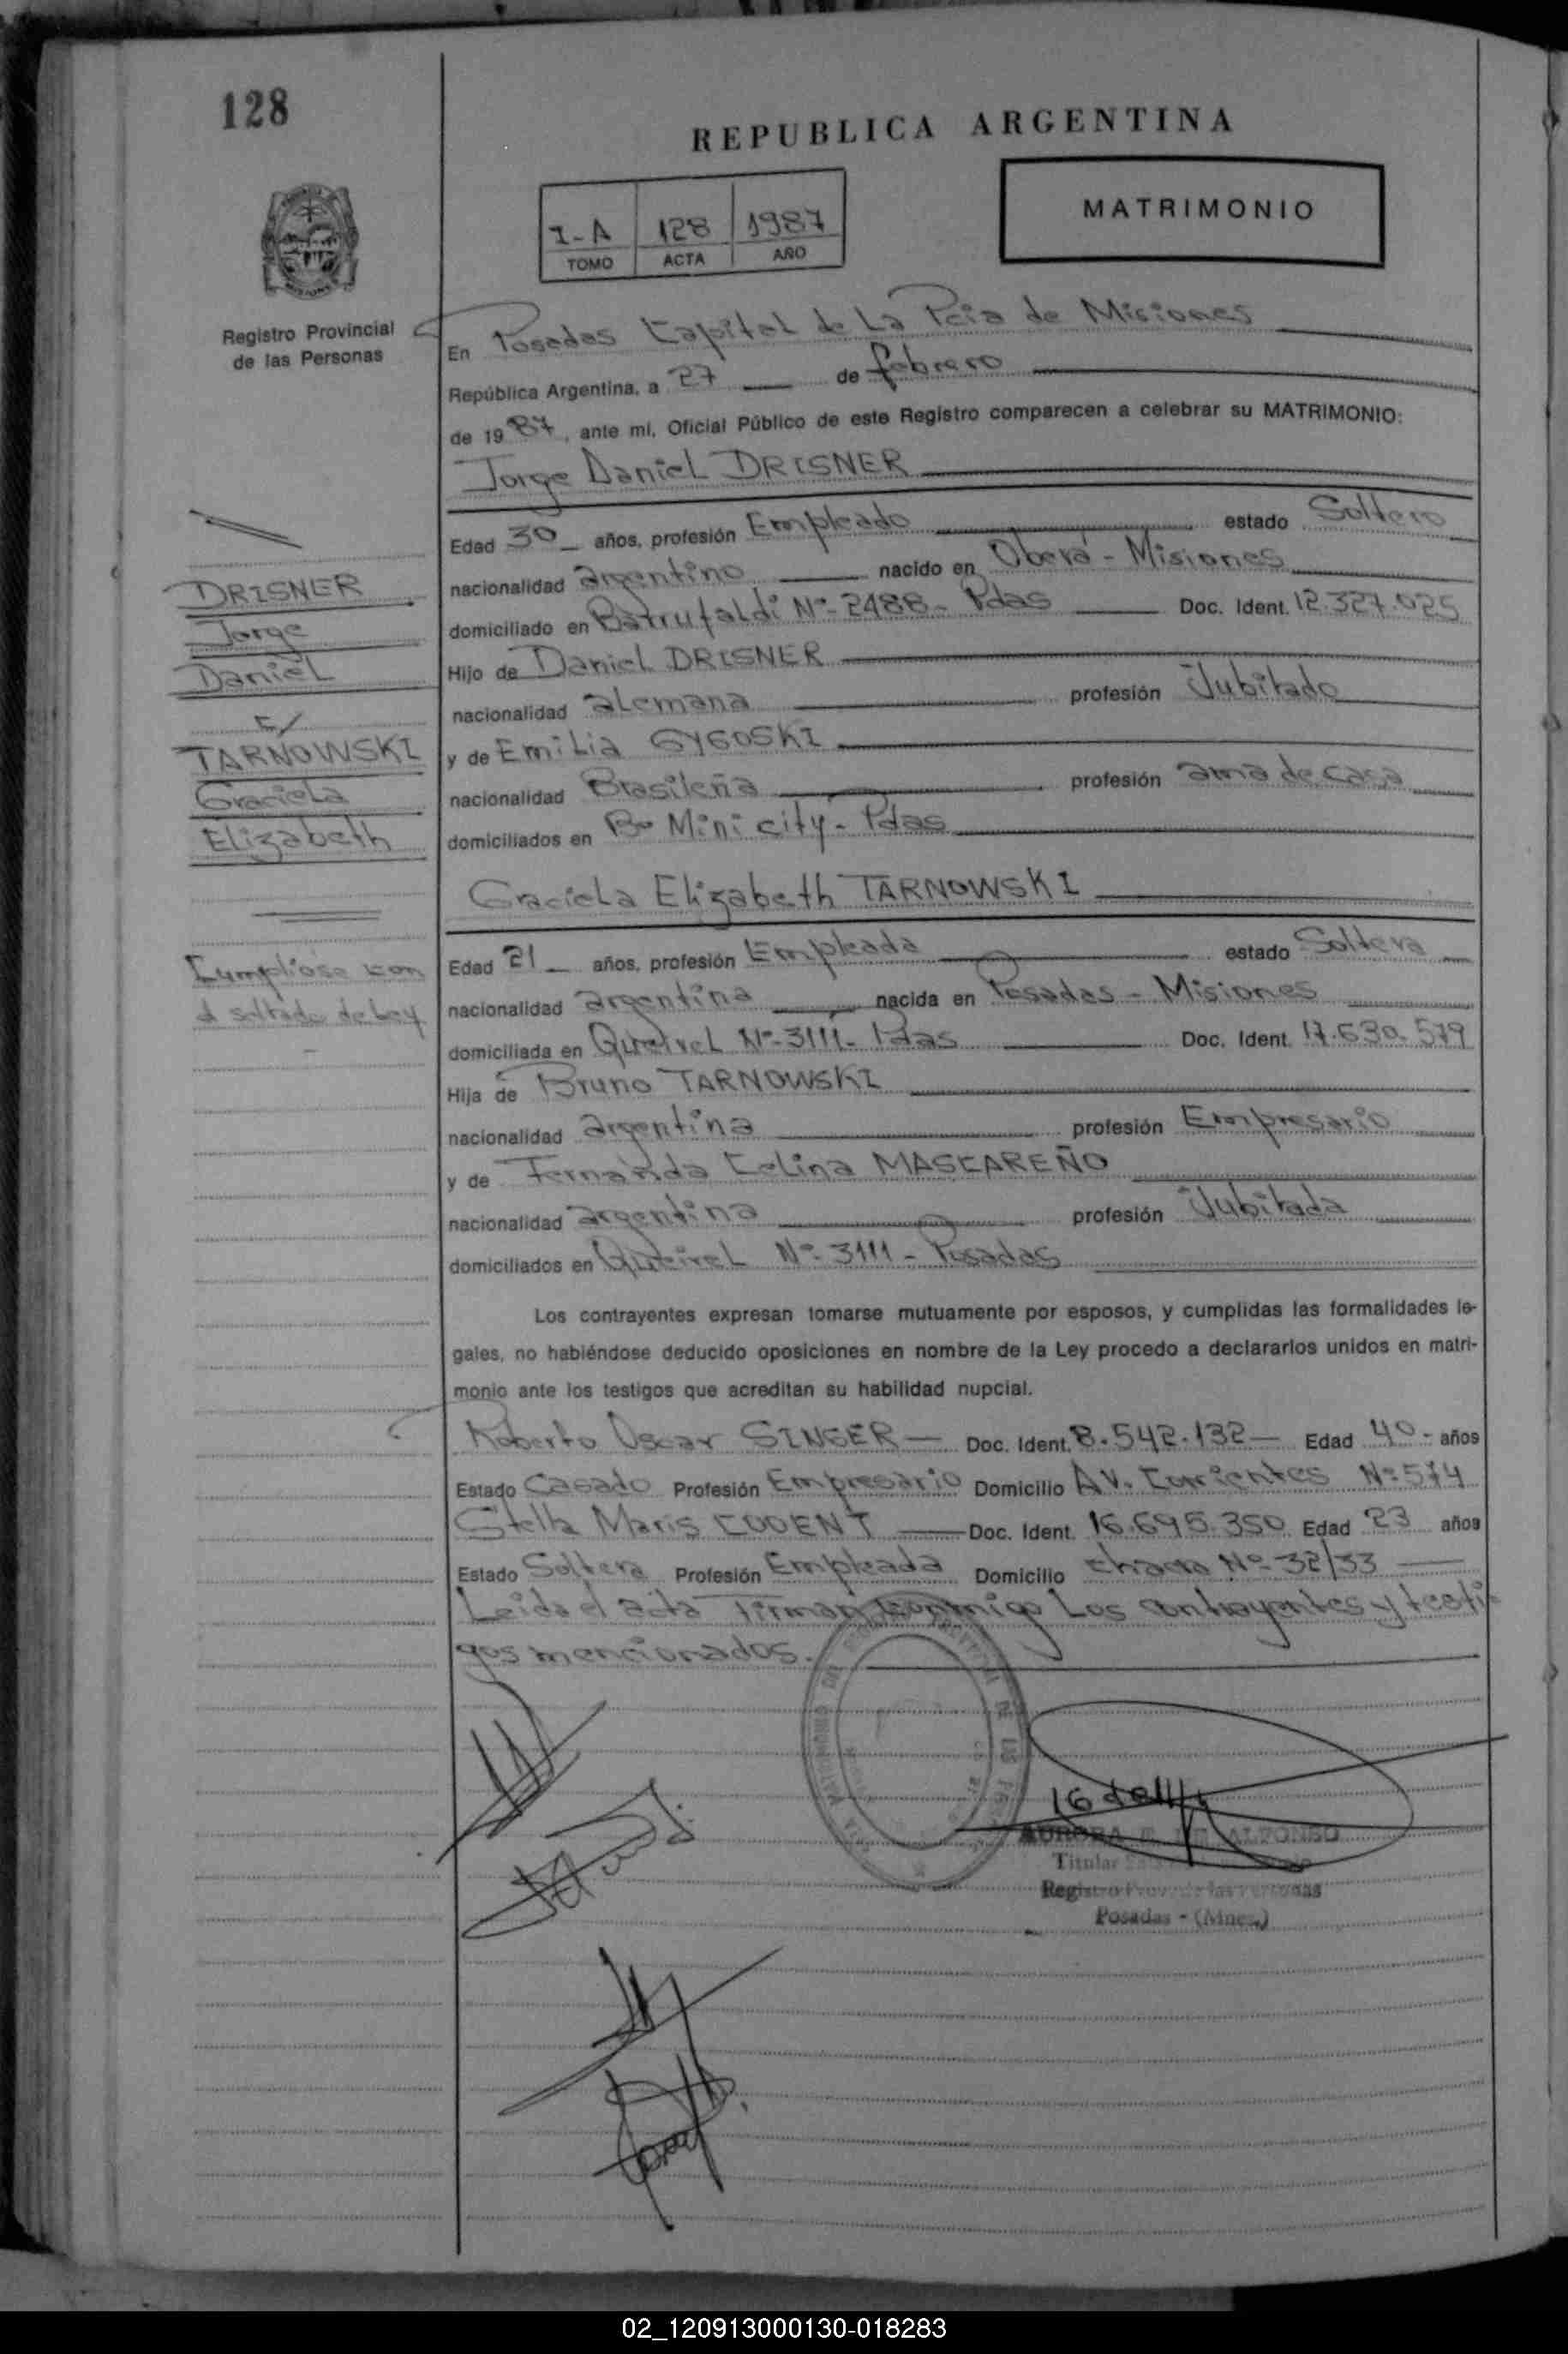 128
REPUBLICA ARGENTINA
MATRIMONIO
I-A 128 1987
TOMO ACTA AÑO
Registro Provincial
de las Personas
En Posadas Capital de La Pcia de Misiones
República Argentina, a 27 de febrero
de 1987, ante mi, Oficial Público de este Registro comparecen a celebrar su MATRIMONIO:
Jorge Daniel DRISNER
Edad 30 años, profesión Empleado estado Soltero
nacionalidad argentino nacido en Oberá - Misiones
domiciliado en Barrufaldi Nº 2488 - Pdas Doc. Ident. 12.327.025
Hijo de Daniel DRISNER
nacionalidad alemana profesión Jubilado
y de Emilia
nacionalidad Brasileña profesión ama de casa
domiciliados en Bº Mini city - Pdas
Graciela Elizabeth TARNOWSKI
DRISNER
Jorge
Daniel
c/
TARNOWSKI
Graciela
Elizabeth
Cumpliose con
el sellado de Ley
Edad 21 años, profesión Empleada estado Soltera
nacionalidad argentina nacida en Posadas - Misiones
domiciliada en Queirel Nº 3111 - Pdas Doc. Ident. 17.630.579
Hija de Bruno TARNOWSKI
nacionalidad argentina profesión Empresario
y de Fernanda Celina MASCAREÑO
nacionalidad argentina profesión Jubilada
domiciliados en Queirel Nº 3111 - Posadas
Los contrayentes expresan tomarse mutuamente por esposos, y cumplidas las formalidades le-
gales, no habiéndose deducido oposiciones en nombre de la Ley procedo a declararlos unidos en matri-
monio ante los testigos que acreditan su habilidad nupcial.
Roberto Oscar SINGER Doc. Ident. 8.542.132 Edad 40 años
Estado Casado Profesión Empresario Domicilio AV. Corrientes Nº 574
Stella Maris Doc. Ident. 16.695.350 Edad 23 años
Estado Soltera Profesión Empleada Domicilio Chacra Nº 32/33
Leida el acta firman conmigo Los contrayentes y testi-
gos mencionados.
AURORA E. DE ALFONSO
Titular
Registro Prov. de las Personas
Posadas - (Mnes.)
02_120913000130-018283